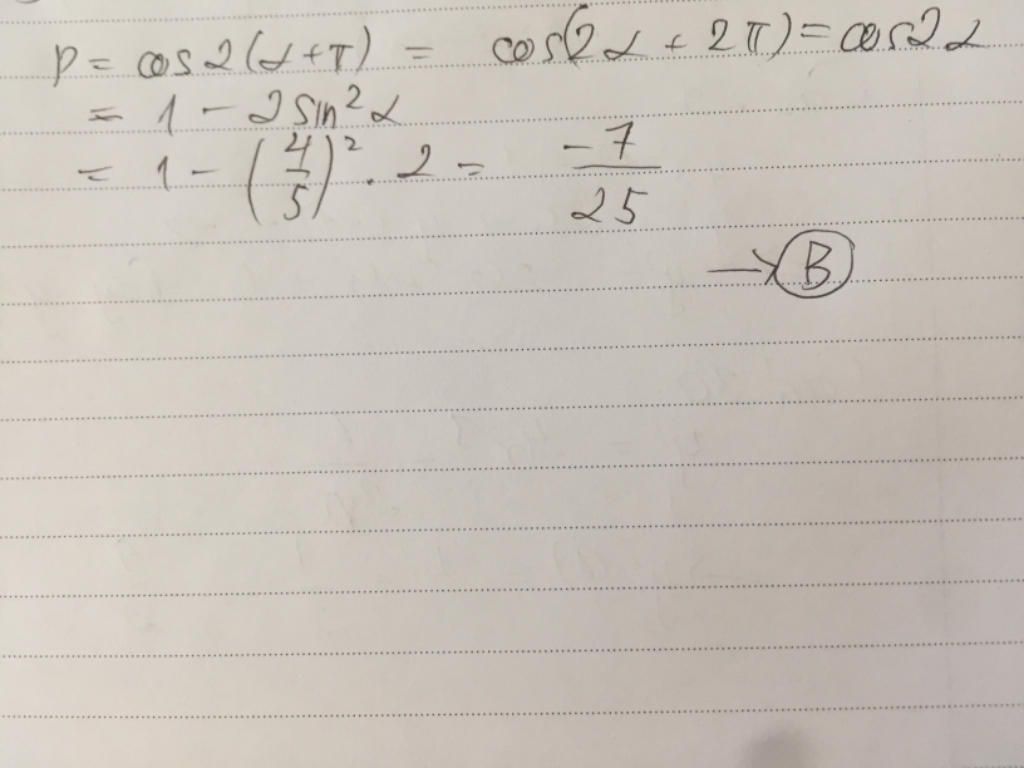 P = cos 2(α + π) = cos(2α + 2π) = cos2α
= 1 - 2 sin²α
= 1 - (4/5)² . 2 = -7/25
→ B